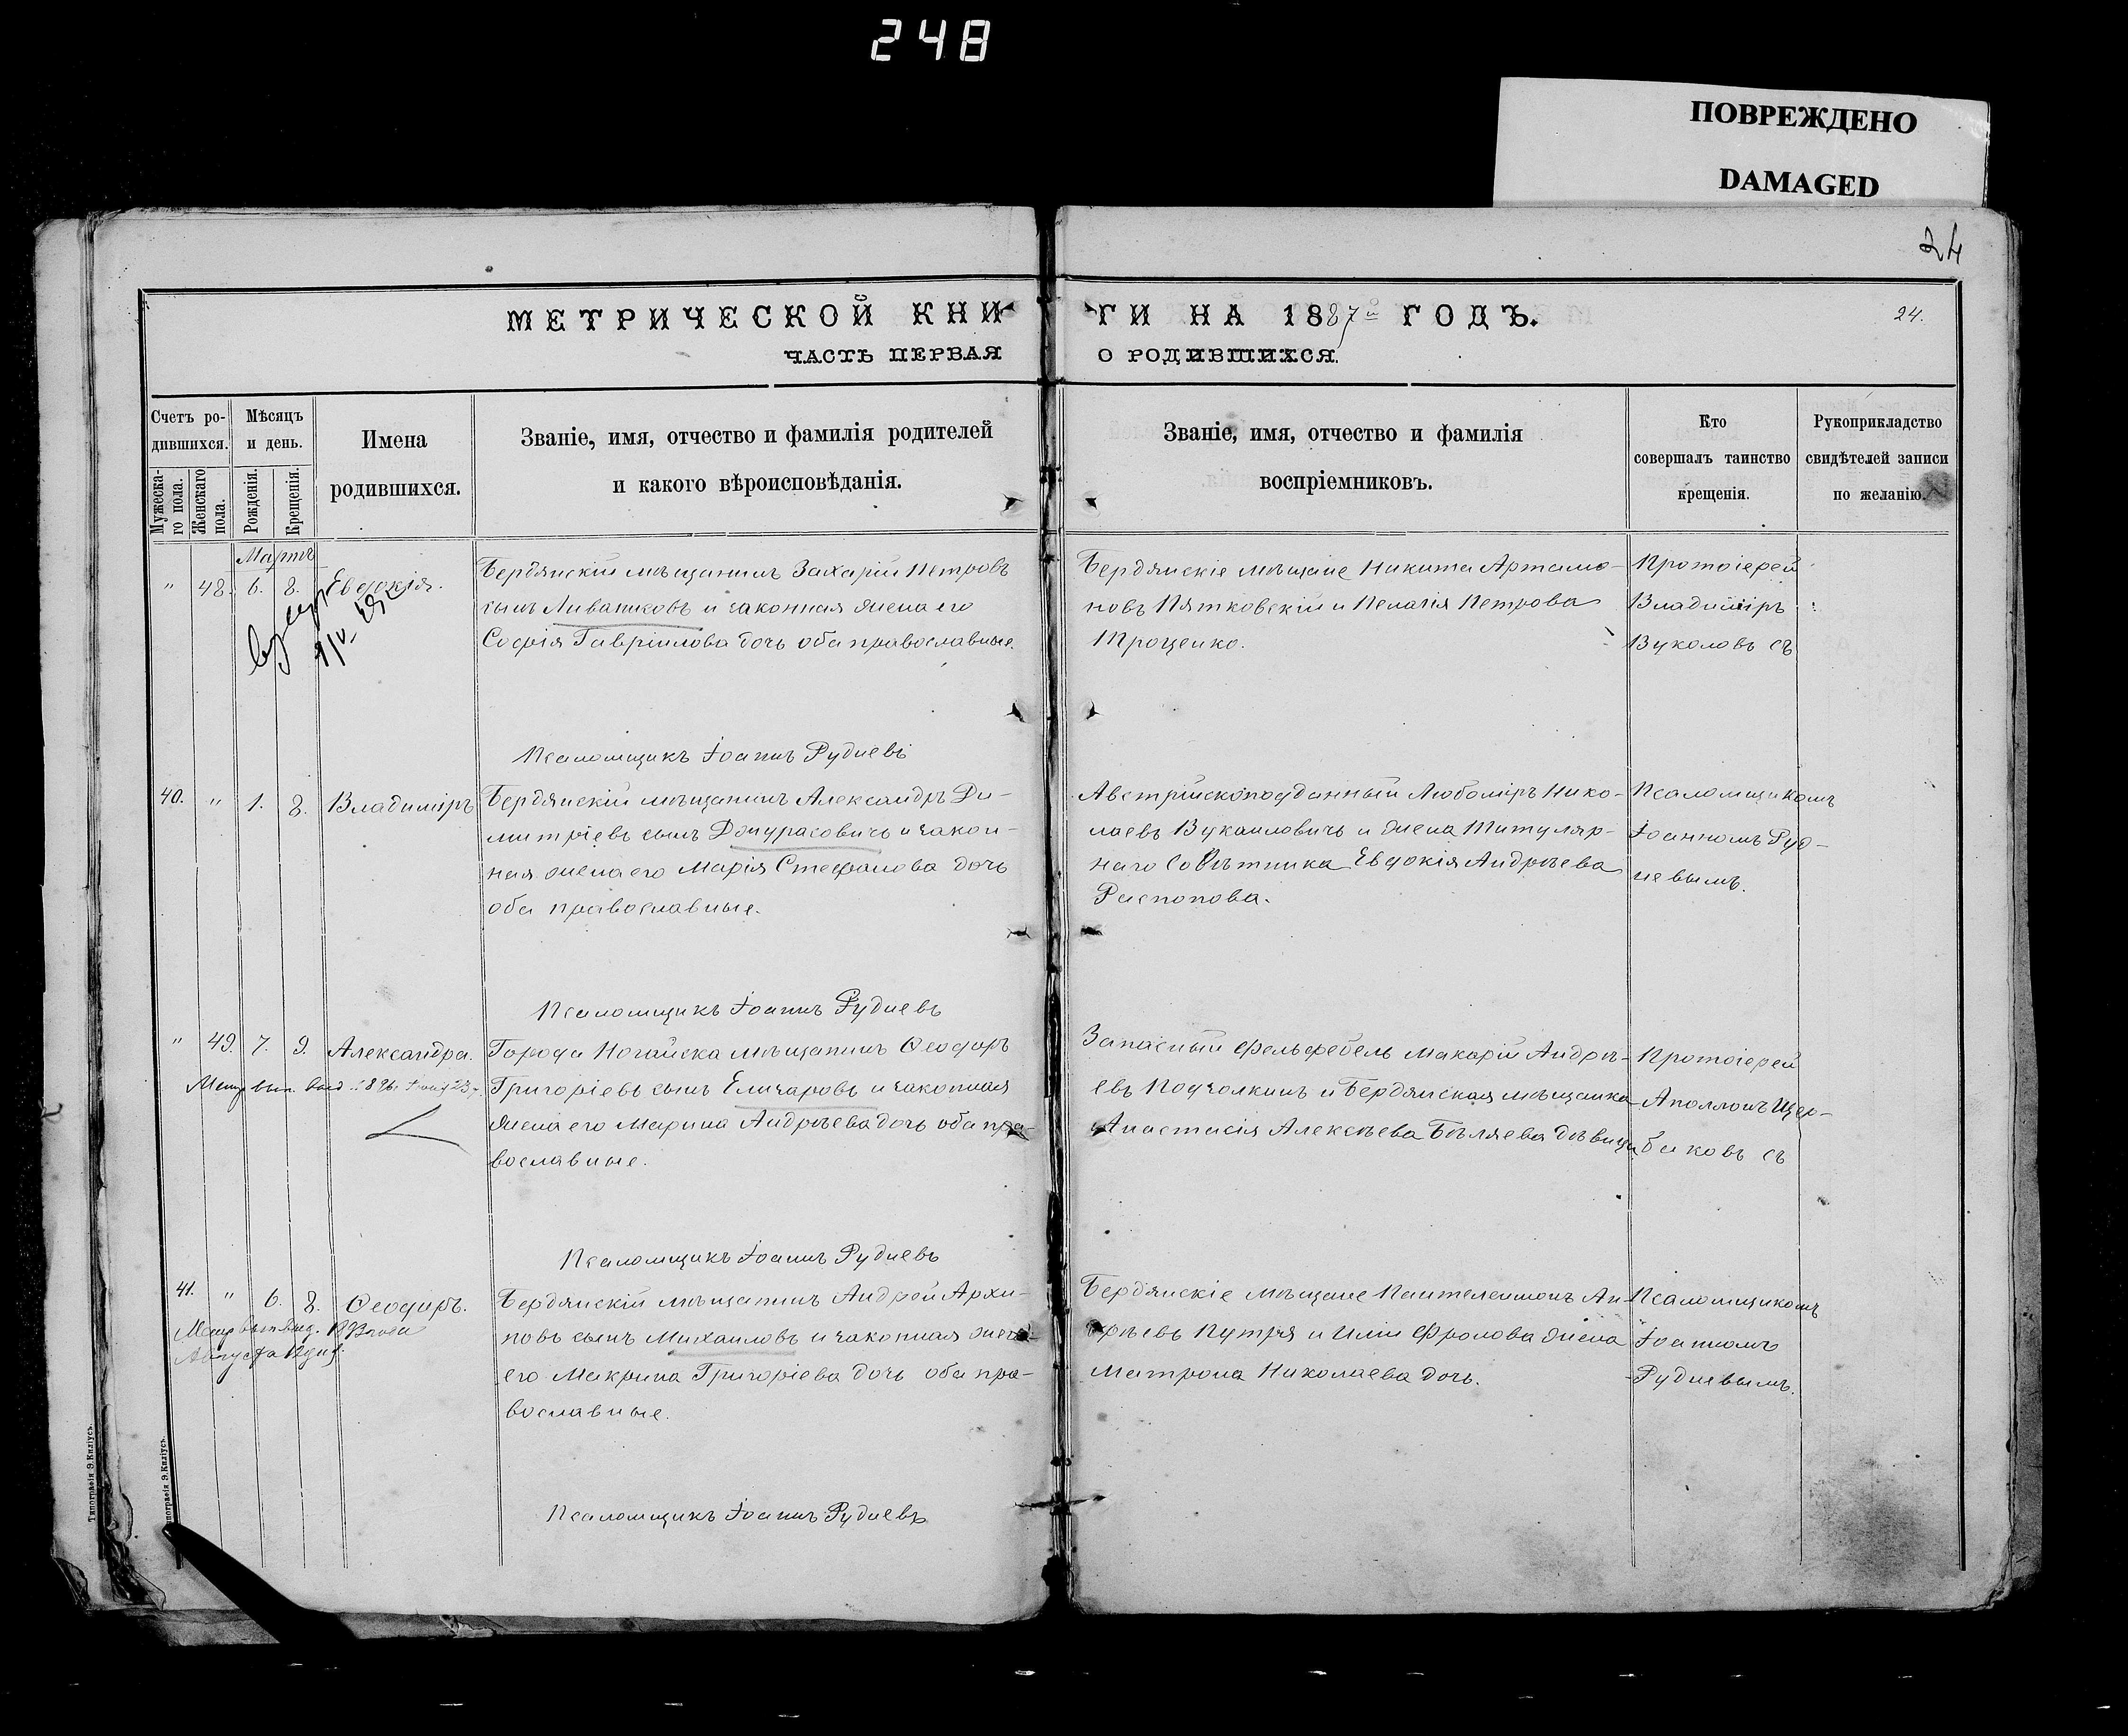 248
ПОВРЕЖДЕНО
DAMAGED
24
МЕТРИЧЕСКОЙ КНИ
ГИ НА 1887й ГОДЪ.
24.
ЧАСТЬ ПЕРВАЯ
О РОДИВШИХСЯ.
Счетъ ро-
дившихся.
Мужеска-
го пола.
Женскаго
пола.
Мѣсяцъ
и день.
Рожденія.
Крещенія.
Имена
родившихся.
Званіе, имя, отчество и фамилія родителей
и какого вѣроисповѣданія.
Званіе, имя, отчество и фамилія
воспріемниковъ.
Кто
совершалъ таинство
крещенія.
Рукоприкладство
свидѣтелей записи
по желанію.
Мартъ
" 48. 6. 8. Евдокія.
Бердянскій мѣщанинъ Захарій Петровъ
сынъ Ливатиковъ и законная жена его
Софія Гавріилова дочь оба православные.
Бердянскіе мѣщане Никита Артамо-
новъ Пятковскій и Пелагія Петрова
Троценко.
Протоіерей
Владиміръ
Вуколовъ съ
Псаломщикъ Іоаннъ Рудневъ
40. " 1. 8. Владиміръ
Бердянскій мѣщанинъ Александръ Ди-
митріевъ сынъ Домурасовичъ и закон-
ная жена его Марія Стефанова дочь
оба православные.
Австрійскоподданный Любоміръ Нико-
лаевъ Вукаиловичъ и жена Титуляр-
наго Совѣтника Евдокія Андрѣева
Распопова.
Псаломщикомъ
Іоанномъ Руд-
невымъ.
Псаломщикъ Іоаннъ Рудневъ
" 49. 7. 9. Александра.
Города Ногайска мѣщанинъ Ѳеодоръ
Григоріевъ сынъ Еличаровъ и законная
жена его Марина Андрѣева дочь оба пра-
вославные.
Запасный фельдфебель Макарій Андрѣ-
евъ Подчолкинъ и Бердянская мѣщанка
Анастасія Алексѣева Бѣляева дѣвица
Протоіерей
Аполлонъ Щер-
баковъ съ
Метр. вып. выд. 1896
Псаломщикъ Іоаннъ Рудневъ
41. " 6. 8. Ѳеодоръ.
Бердянскій мѣщанинъ Андрей Архи-
повъ сынъ Михаиловъ и законная жена
его Макрина Григоріева дочь оба пра-
вославные.
Бердянскіе мѣщане Пантелеимонъ Ан-
дрѣевъ Путря и Иліи Фролова жена
Матрона Николаева дочь.
Псаломщикомъ
Іоанномъ
Рудневымъ.
Метр. вып. выд.
Августа 12 дня
Псаломщикъ Іоаннъ Рудневъ
Типографія Э.Киліусъ.
Типографія Э.Киліусъ.